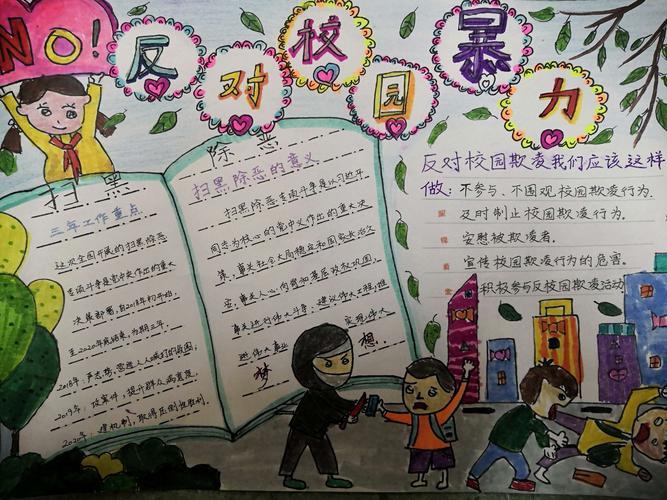 NO!
反对校园暴力
扫黑
三年工作重点
这次全国开展的扫黑除恶
专项斗争是党中央作出的重大
决策部署,自2018年初开始,
至2020年底结束,为期三年。
2018年:严态势,营造人人喊打的氛围,
2019年:攻案件,提升群众满意度,
2020年:建机制,取得压倒性胜利。
除恶
扫黑除恶的意义
扫黑除恶专项斗争是以习近平
同志为核心的党中央作出的重大决
策,事关社会大局稳定和国家长治久
安,事关人心向背和基层政权巩固,
事关进行伟大斗争、建设伟大工程、推
进伟大事业 实现伟大
梦想.
反对校园欺凌我们应该这样
做:不参与、不围观校园欺凌行为.
及时制止校园欺凌行为.
安慰被欺凌者.
宣传校园欺凌行为的危害.
积极参与反校园欺凌活动